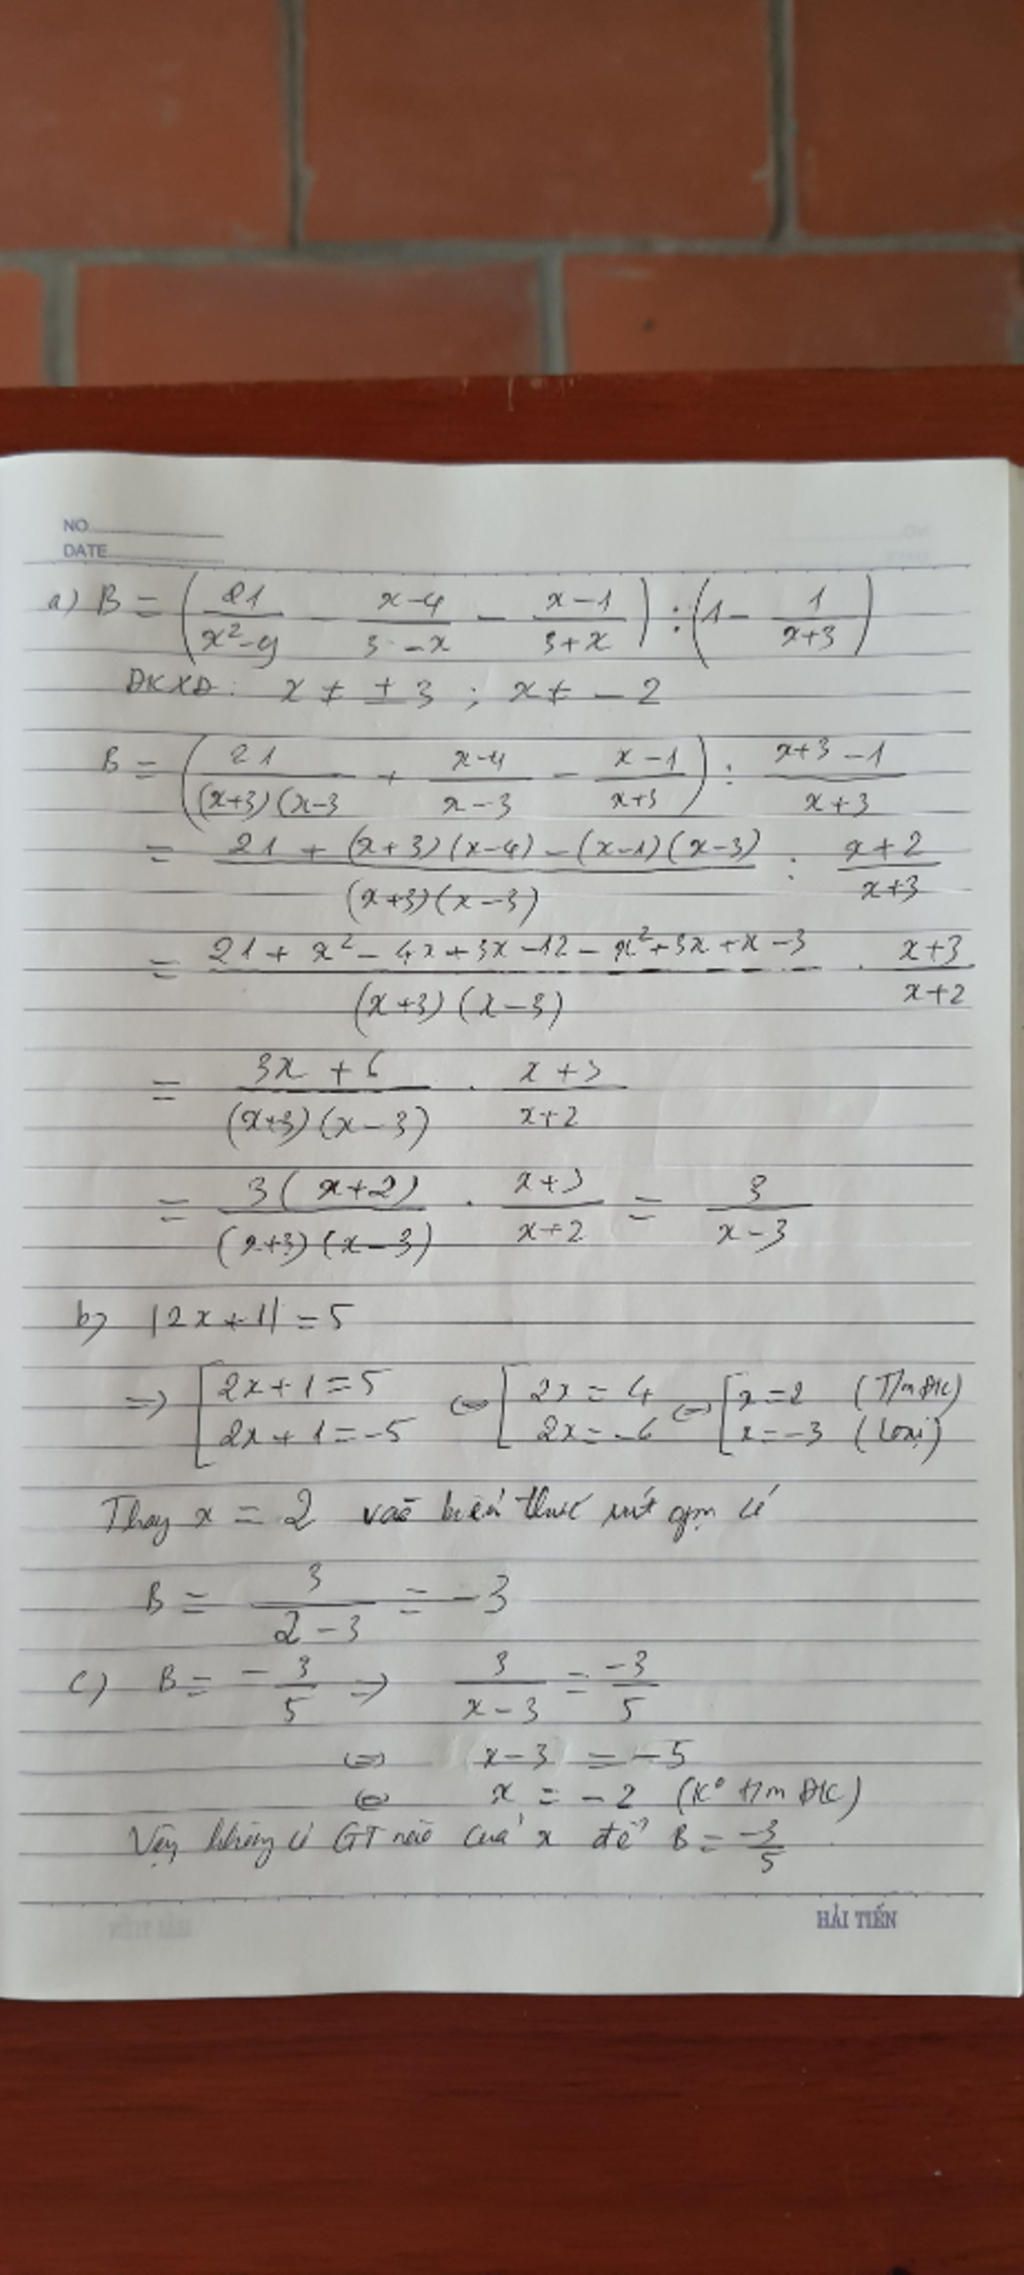 NO.
DATE
a) B = (21/(x²-9) - (x-4)/(3-x) - (x-1)/(3+x)) : (1 - 1/(x+3))
ĐKXĐ: x ≠ ±3 ; x ≠ -2
B = (21/((x+3)(x-3) + (x-4)/(x-3) - (x-1)/(x+3)) : (x+3-1)/(x+3)
= (21 + (x+3)(x-4) - (x-1)(x-3))/((x+3)(x-3)) : (x+2)/(x+3)
= (21 + x² - 4x + 3x - 12 - x² + 3x + x - 3)/((x+3)(x-3)) · (x+3)/(x+2)
= (3x + 6)/((x+3)(x-3)) · (x+3)/(x+2)
= 3(x+2)/((x+3)(x-3)) · (x+3)/(x+2) = 3/(x-3)
b) |2x+1| = 5
=> [2x+1=5 <=> [2x=4 <=> [x=2 (T/m ĐK)
2x+1=-5 2x=-6 x=-3 (Loại)
Thay x = 2 vào biểu thức rút gọn có
B = 3/(2-3) = -3
c) B = -3/5 => 3/(x-3) = -3/5
<=> x-3 = -5
<=> x = -2 (K° t/m ĐK)
Vậy không có GT nào của x để B = -3/5
HẢI TIẾN